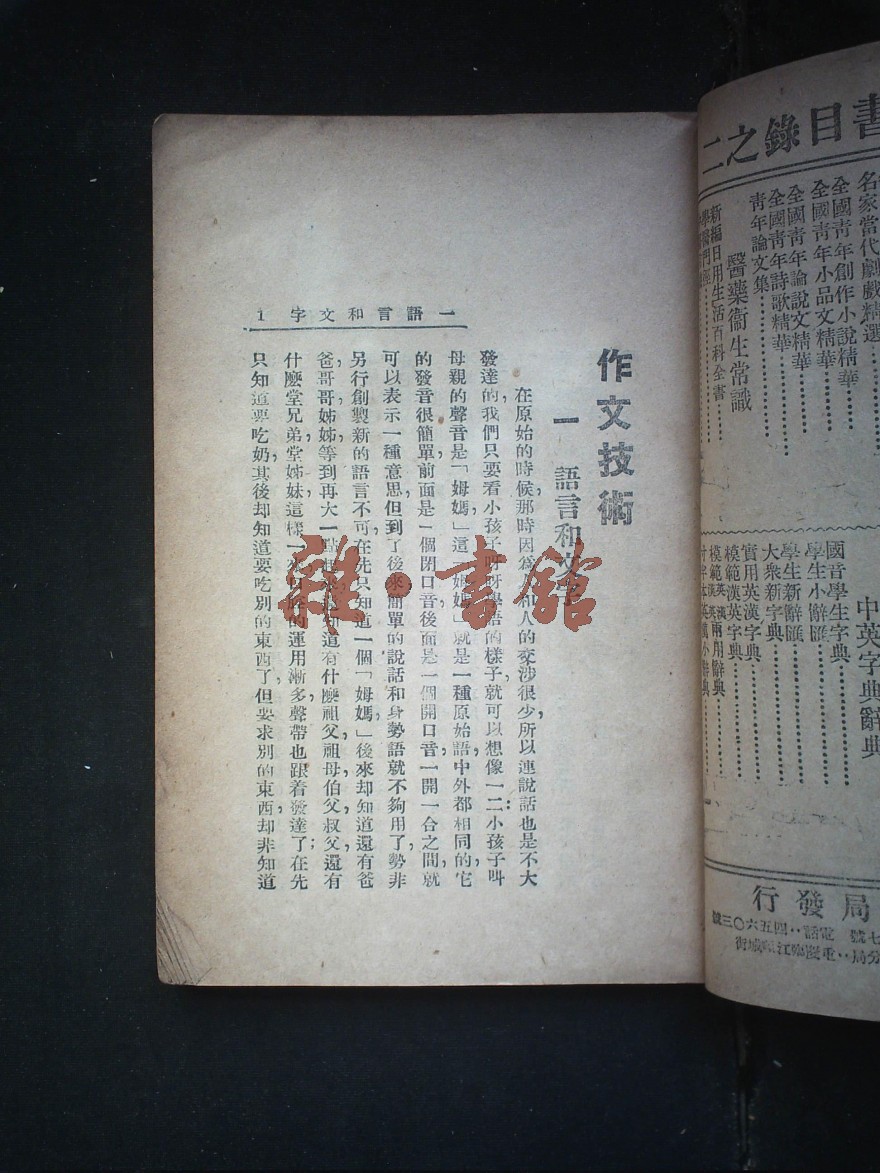 一 語言和文字 1
作文技術
一 語言和文字
在原始的時候，那時因爲人和人的交涉很少，所以連說話也是不大
發達的，我們只要看小孩子呀呀學語的樣子，就可以想像一二：小孩子叫
母親的聲音是「姆媽」，這「姆媽」就是一種原始語，中外都相同的，它
的發音很簡單，前面是一個閉口音，後面是一個開口音，一開一合之間，就
可以表示一種意思，但到了後來，簡單的說話和身勢語就不夠用了，勢非
另行創製新的語言不可，在先只知道一個「姆媽」，後來却知道還有爸
爸，哥哥，姊姊等，到再大一點知道有什麽祖父，祖母，伯父，叔父，還有
什麽堂兄弟，堂姊妹，這樣一來的運用漸多，聲帶也跟着發達了；在先
只知道要吃奶，其後却知道要吃別的東西了，但要求別的東西，却非知道
雜·書館
書目錄之二
名家當代劇戲精選
全國靑年創作小說精華
全國靑年小品文精華
全國靑年論說文精華
全國靑年詩歌精華
靑年論文集
醫藥衞生常識
新編日用生活百科全書
中英字典辭典
國音學生字典
學生小辭匯
學生新辭匯
大衆新字典
實用英漢字典
模範漢英字典
模範英漢漢英兩用辭典
局發行
七號 電話：四五六〇三號
分局：重慶臨江順城街